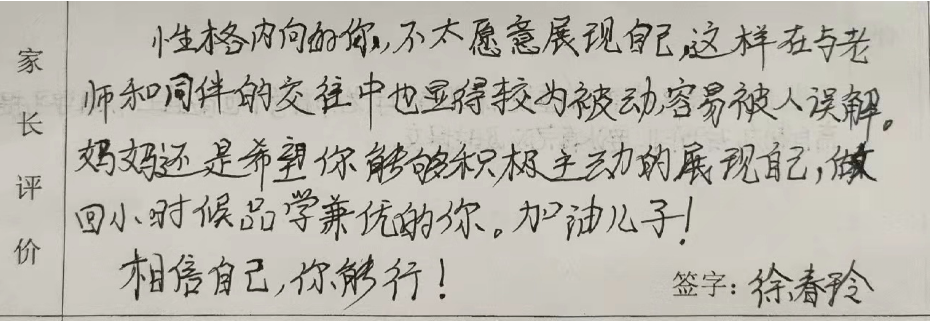 家长评价
性格内向的你,不太愿意展现自己,这样在与老
师和同伴的交往中也显得较为被动,容易被人误解。
妈妈还是希望你能够积极主动的展现自己,做
回小时候品学兼优的你。加油儿子!
相信自己,你能行!
签字:徐春玲